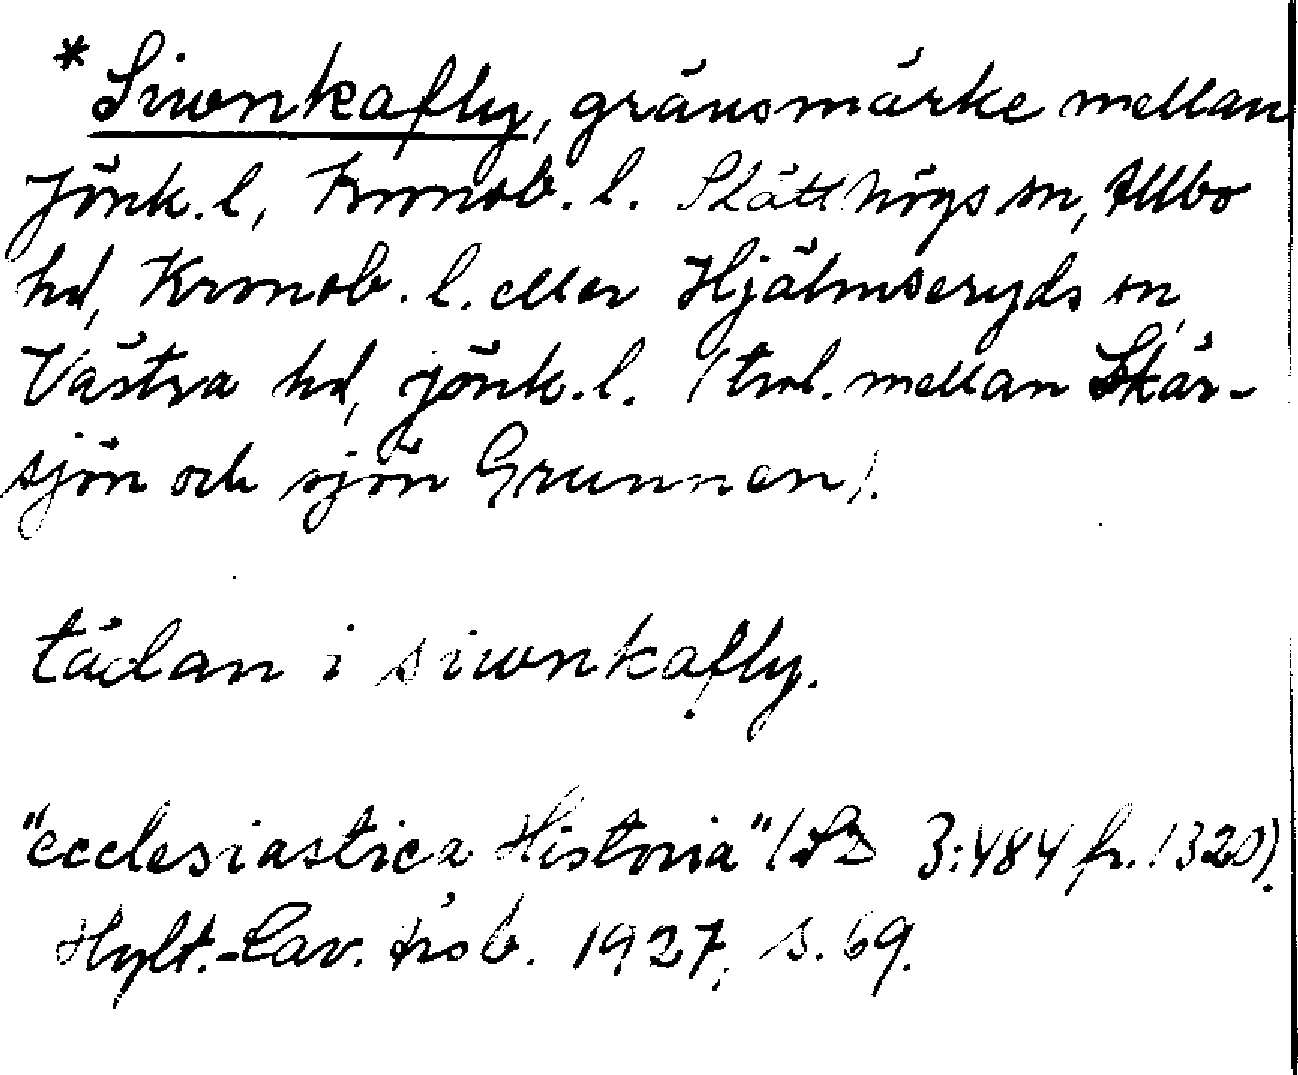 * Siwnkafly, gränsmärke mellan
Jönk. l, Kronob. l. Slätthögs sn, Allbo
hd, Kronob. l. eller Hjälmseryds sn,
Västra hd, Jönk. l. (trol. mellan Skär-
sjön och sjön Grunnen).
tådan i siwnkafly.
"ecclesiastica Historia" (SD 3:484 fr. 1320).
Hylt.-Cav. årsb. 1927, s. 69.